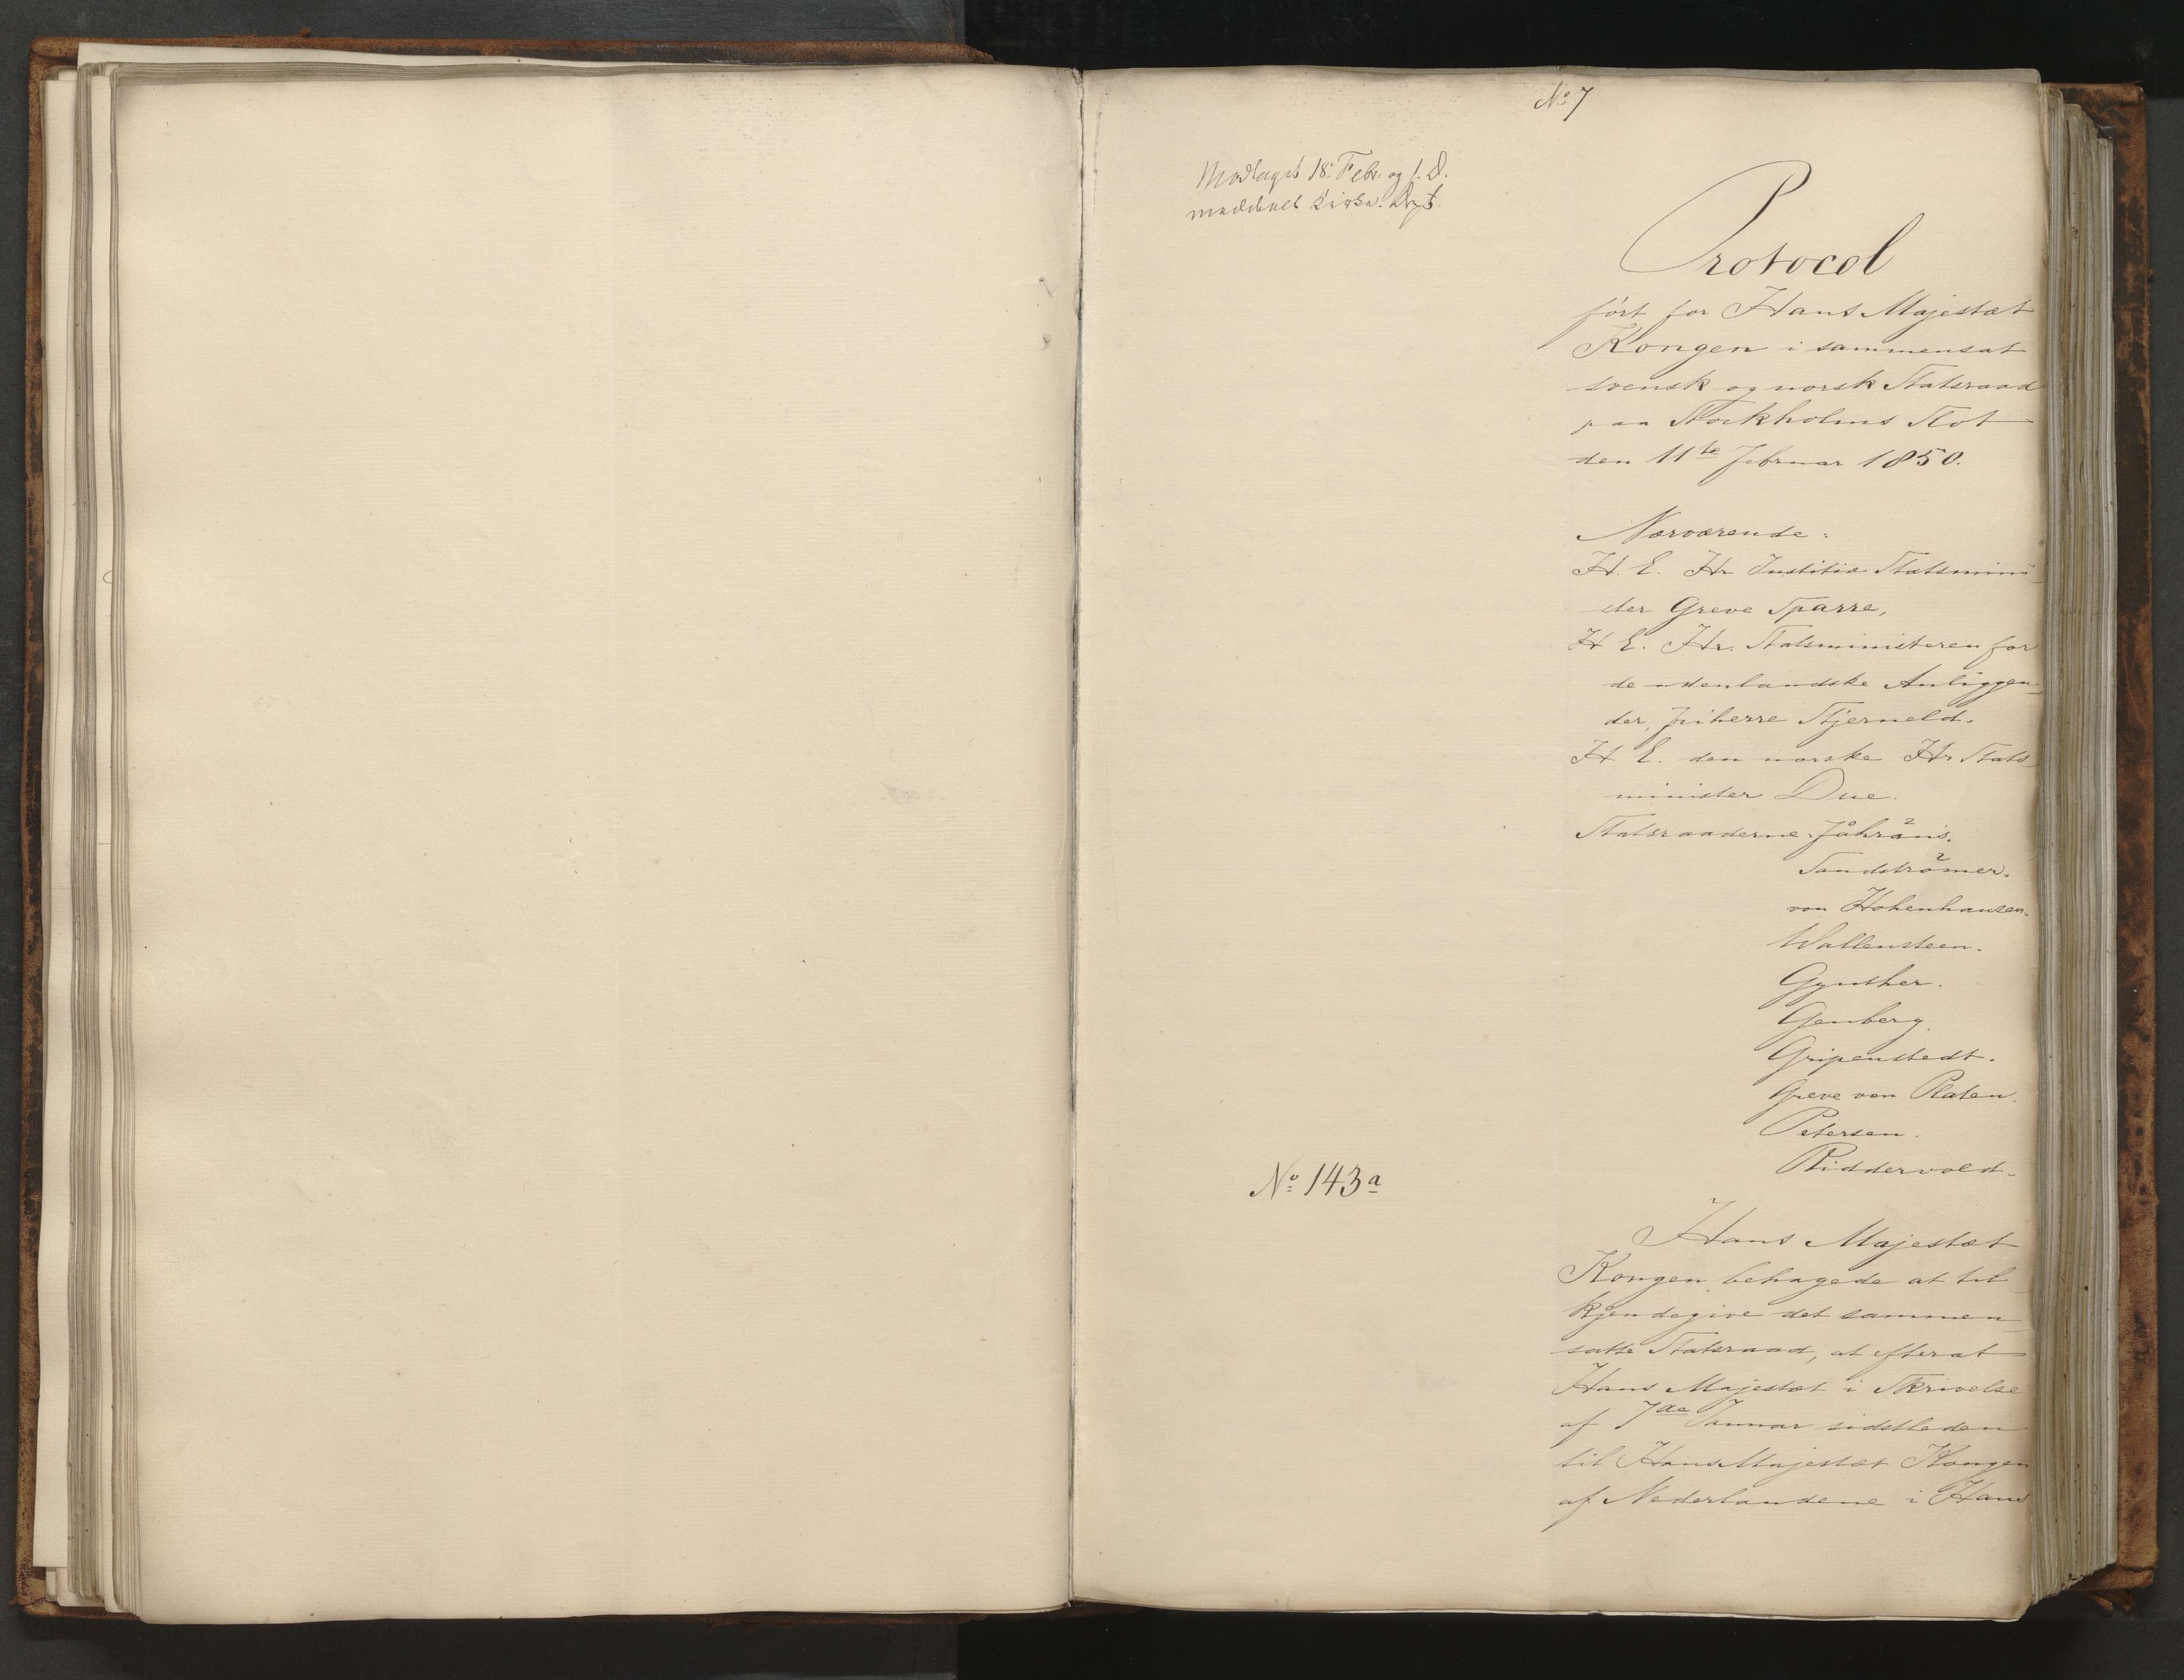 No 7
Modtaget 18. Febr. og s. D.
meddelt Kirke-Dept.
Protocol
ført for Hans Majestæt
Kongen i sammensat
svensk og norsk Statsraad
paa Stockholms Slot
den 11te Februar 1850.
Nærværende:
H. E. Hr Justitie Statsmini-
ster Greve Sparre,
H E. Hr. Statsministeren for
de udenlandske Anliggen-
der, friherre Stjerneld.
H E. den norske Hr Stats-
minister Due.
Statsraaderne: Fåhræus.
Sandströmer.
von Hohenhausen.
Wallensteen.
Gynther.
Genberg.
Gripenstedt.
Greve von Platen.
Petersen.
Riddervold.
No 143a
Hans Majestæt
Kongen behagede at til-
kjendegive det sammen-
satte Statsraad, at efterat
Hans Majestæt i Skrivelse
af 7de Januar sidstleden
til Hans Majestæt Kongen
af Nederlandene i Hans